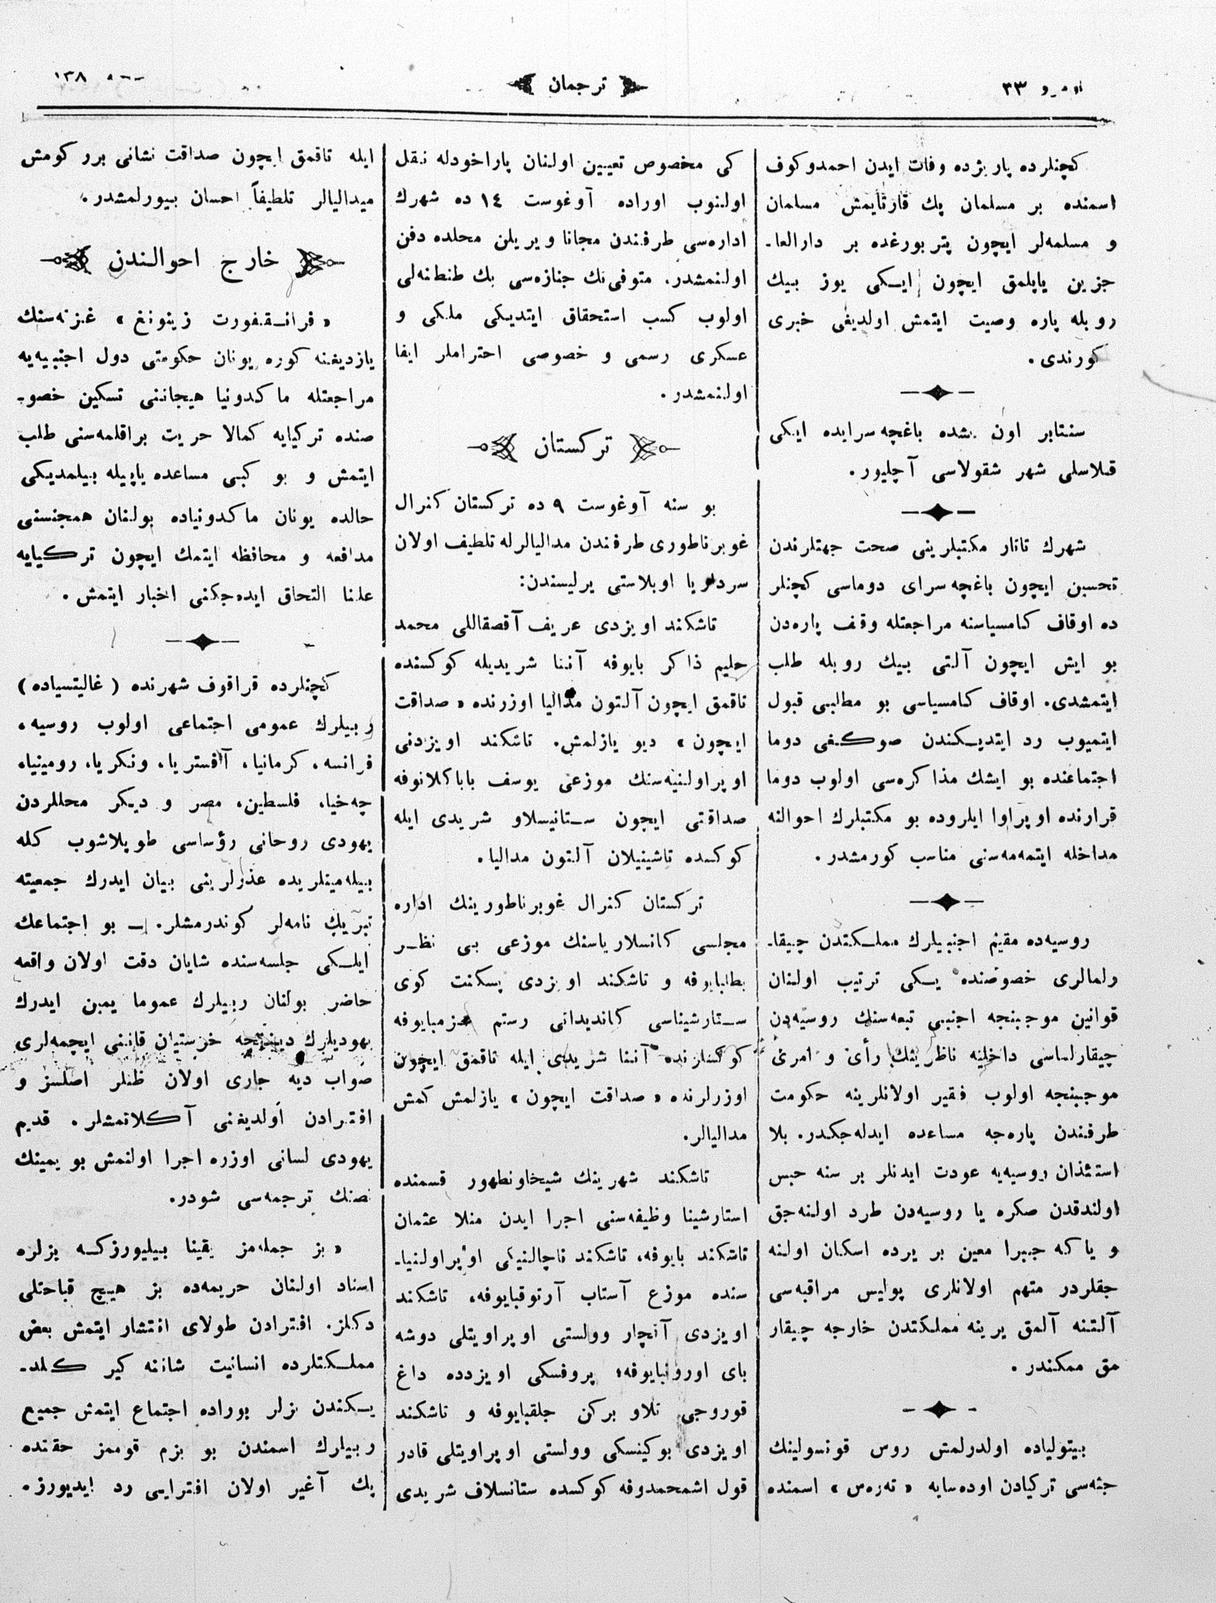 نومرو ٣٣
ترجمان
١٣٨
كچنلرده پاريژده وفات ايدن احمدوكوف
اسمنده بر مسلمان پك قارتايمش مسلمان
و مسلمه‌لر ايچون پتربورغده بر دارالعا-
جزين ياپلمق ايچون ايكى يوز بيك
روبله پاره وصيت ايتمش اولديغى خبرى
كورندى.
سنتابر اون بشده باغچه‌سرايده ايكى
قلاسلى شهر شقولاسى آچليور.
شهرك تاتار مكتبلرينى صحت جهتلرندن
تحسين ايچون باغچه‌سراى دوماسى كچنلر
ده اوقاف كامسياسنه مراجعتله وقف پاره‌دن
بو ايش ايچون آلتى بيك روبله طلب
ايتمشدى. اوقاف كامسياسى بو مطالبى قبول
ايتميوب رد ايتديكندن صوكغى دوما
اجتماعنده بو ايشك مذاكره‌سى اولوب دوما
قرارنده اوپراوا ايلروده بو مكتبلرك احوالنه
مداخله ايتمه‌مه‌سنى مناسب كورمشدر.
روسيه‌ده مقيم اجنبيلرك مملكتدن چيقا-
رلمالرى خصوصنده يكى ترتيب اولنان
قوانين موجبنجه اجنبى تبعه‌سنك روسيه‌دن
چيقارلماسى داخليه ناظرينك رأى و امرى
موجبنجه اولوب فقير اولانلرينه حكومت
طرفندن پاره‌جه مساعده ايدله‌جكدر. بلا
استئذان روسيه‌يه عودت ايدنلر بر سنه حبس
اولندقدن صكره يا روسيه‌دن طرد اولنه‌جق
و ياكه جبرا معين بر يرده اسكان اولنه
جقلردر متهم اولانلرى پوليس مراقبه‌سى
آلتنه آلمق يرينه مملكتدن خارجه چيقار
مق ممكندر.
بيتولياده اولدرلمش روس قونسولينك
جثه‌سى تركيادن اوده‌سايه « ته‌ره‌س » اسمنده
كى مخصوص تعيين اولنان پاراخودله نقل
اولنوب اوراده آوغوست ١٤ ده شهرك
اداره‌سى طرفندن مجانا ويريلن محلده دفن
اولنمشدر. متوفى‌نك جنازه‌سى پك طنطنه‌لى
اولوب كسب استحقاق ايتديكى ملكى و
عسكرى رسمى و خصوصى احتراملر ايفا
اولنمشدر.
تركستان
بو سنه آوغوست ٩ ده تركستان كنرال
غوبرناطورى طرفندن مداليالرله تلطيف اولان
سردريا اوبلاستى يرليسندن:
تاشكند اويزدى عريف آقصقاللى محمد
حليم ذاكر بايوفه آننا شريديله كوكسنده
تاقمق ايچون آلتون مداليا اوزرنده « صداقت
ايچون » ديو يازلمش. تاشكند اويزدنى
اوپراولنيه‌سنك موزعى يوسف باباكلانوفه
صداقتى ايچون ستانيسلاو شريدى ايله
كوكسده تاشينيلان آلتون مداليا.
تركستان كنرال غوبرناطورينك اداره
مجلسى كانسلارياسنك موزعى بى نظر
و تاشكند اويزدى پسكنت كوى
ستارشيناسى كانديداتى رستم
كوكسلرنده آننا شريدى ايله تاقمق ايچون
اوزرلرنده « صداقت ايچون » يازلمش كمش
مداليالر.
تاشكند شهرينك شيخاونطهور قسمنده
استارشينا وظيفه‌سنى اجرا ايدن منلا عثمان
تاشكند بايوفه، تاشكند ناچالنيكى اوپراولنيا-
سنده موزع آستاب آرتوقبايوفه، تاشكند
اويزدى آنچار وولستى اوپراويتلى دوشه
باى اورونبايوفه؛ پروفسكى اويزدده داغ
قوروجى تلاو بركن جلقبايوفه و تاشكند
اويزدى بوكينسكى وولستى اوپراويتلى قادر
قول اشمحمدوفه كوكسده ستانسلاف شريدى
ايله تاقمق ايچون صداقت نشانى برر كومش
ميداليالر تلطيفاً احسان بيورلمشدر.
خارج احوالندن
« فرانقفورت زيتونغ » غزته‌سنك
يازديغنه كوره يونان حكومتى دول اجنبيه‌يه
مراجعتله ماكدونيا هيجاننى تسكين خصو-
صنده تركيايه كمالا حريت براقلمه‌سنى طلب
ايتمش و بو كبى مساعده ياپيله بيلمديكى
حالده يونان ماكدونياده بولنان همجنسنى
مدافعه و محافظه ايتمك ايچون تركيايه
علنا التحاق ايده‌جكنى اخبار ايتمش.
كچنلرده قراقوف شهرنده (غاليتسياده)
ربيلرك عمومى اجتماعى اولوب روسيه،
فرانسه، كرمانيا، آفستريا، ونكريا، رومينيا،
چه‌خيا، فلسطين، مصر و ديكر محللردن
يهودى روحانى رؤساسى طوپلاشوب كله
بيله‌ميتلريده عذرلرينى بيان ايدرك جمعيته
تبريك نامه‌لر كوندرمشلر. — بو اجتماعك
ايلكى جلسه‌سنده شايان دقت اولان واقعه
حاضر بولنان ربيلرك عموما يمين ايدرك
يهوديلرك دينجه خرستيان قاننى ايچمه‌لرى
صواب ديه جارى اولان ظنلر اصلسز و
افترادن اولديغنى آكلاتمشلر. قديم
يهودى لسانى اوزره اجرا اولنمش بو يمينك
نصنك ترجمه‌سى شودر.
« بز جمله‌مز يقينا بيليورزكه بزلره
اسناد اولنان جريمه‌ده بز هيچ قباحتلى
دكلز. افترادن طولاى انتشار ايتمش بعض
مملكتلرده انسانيت شاننه كير كلد-
يكندن بزلر بوراده اجتماع ايتمش جميع
ربيلرك اسمندن بو بزم قوممز حقنده
پك آغير اولان افترايى رد ايديورز.